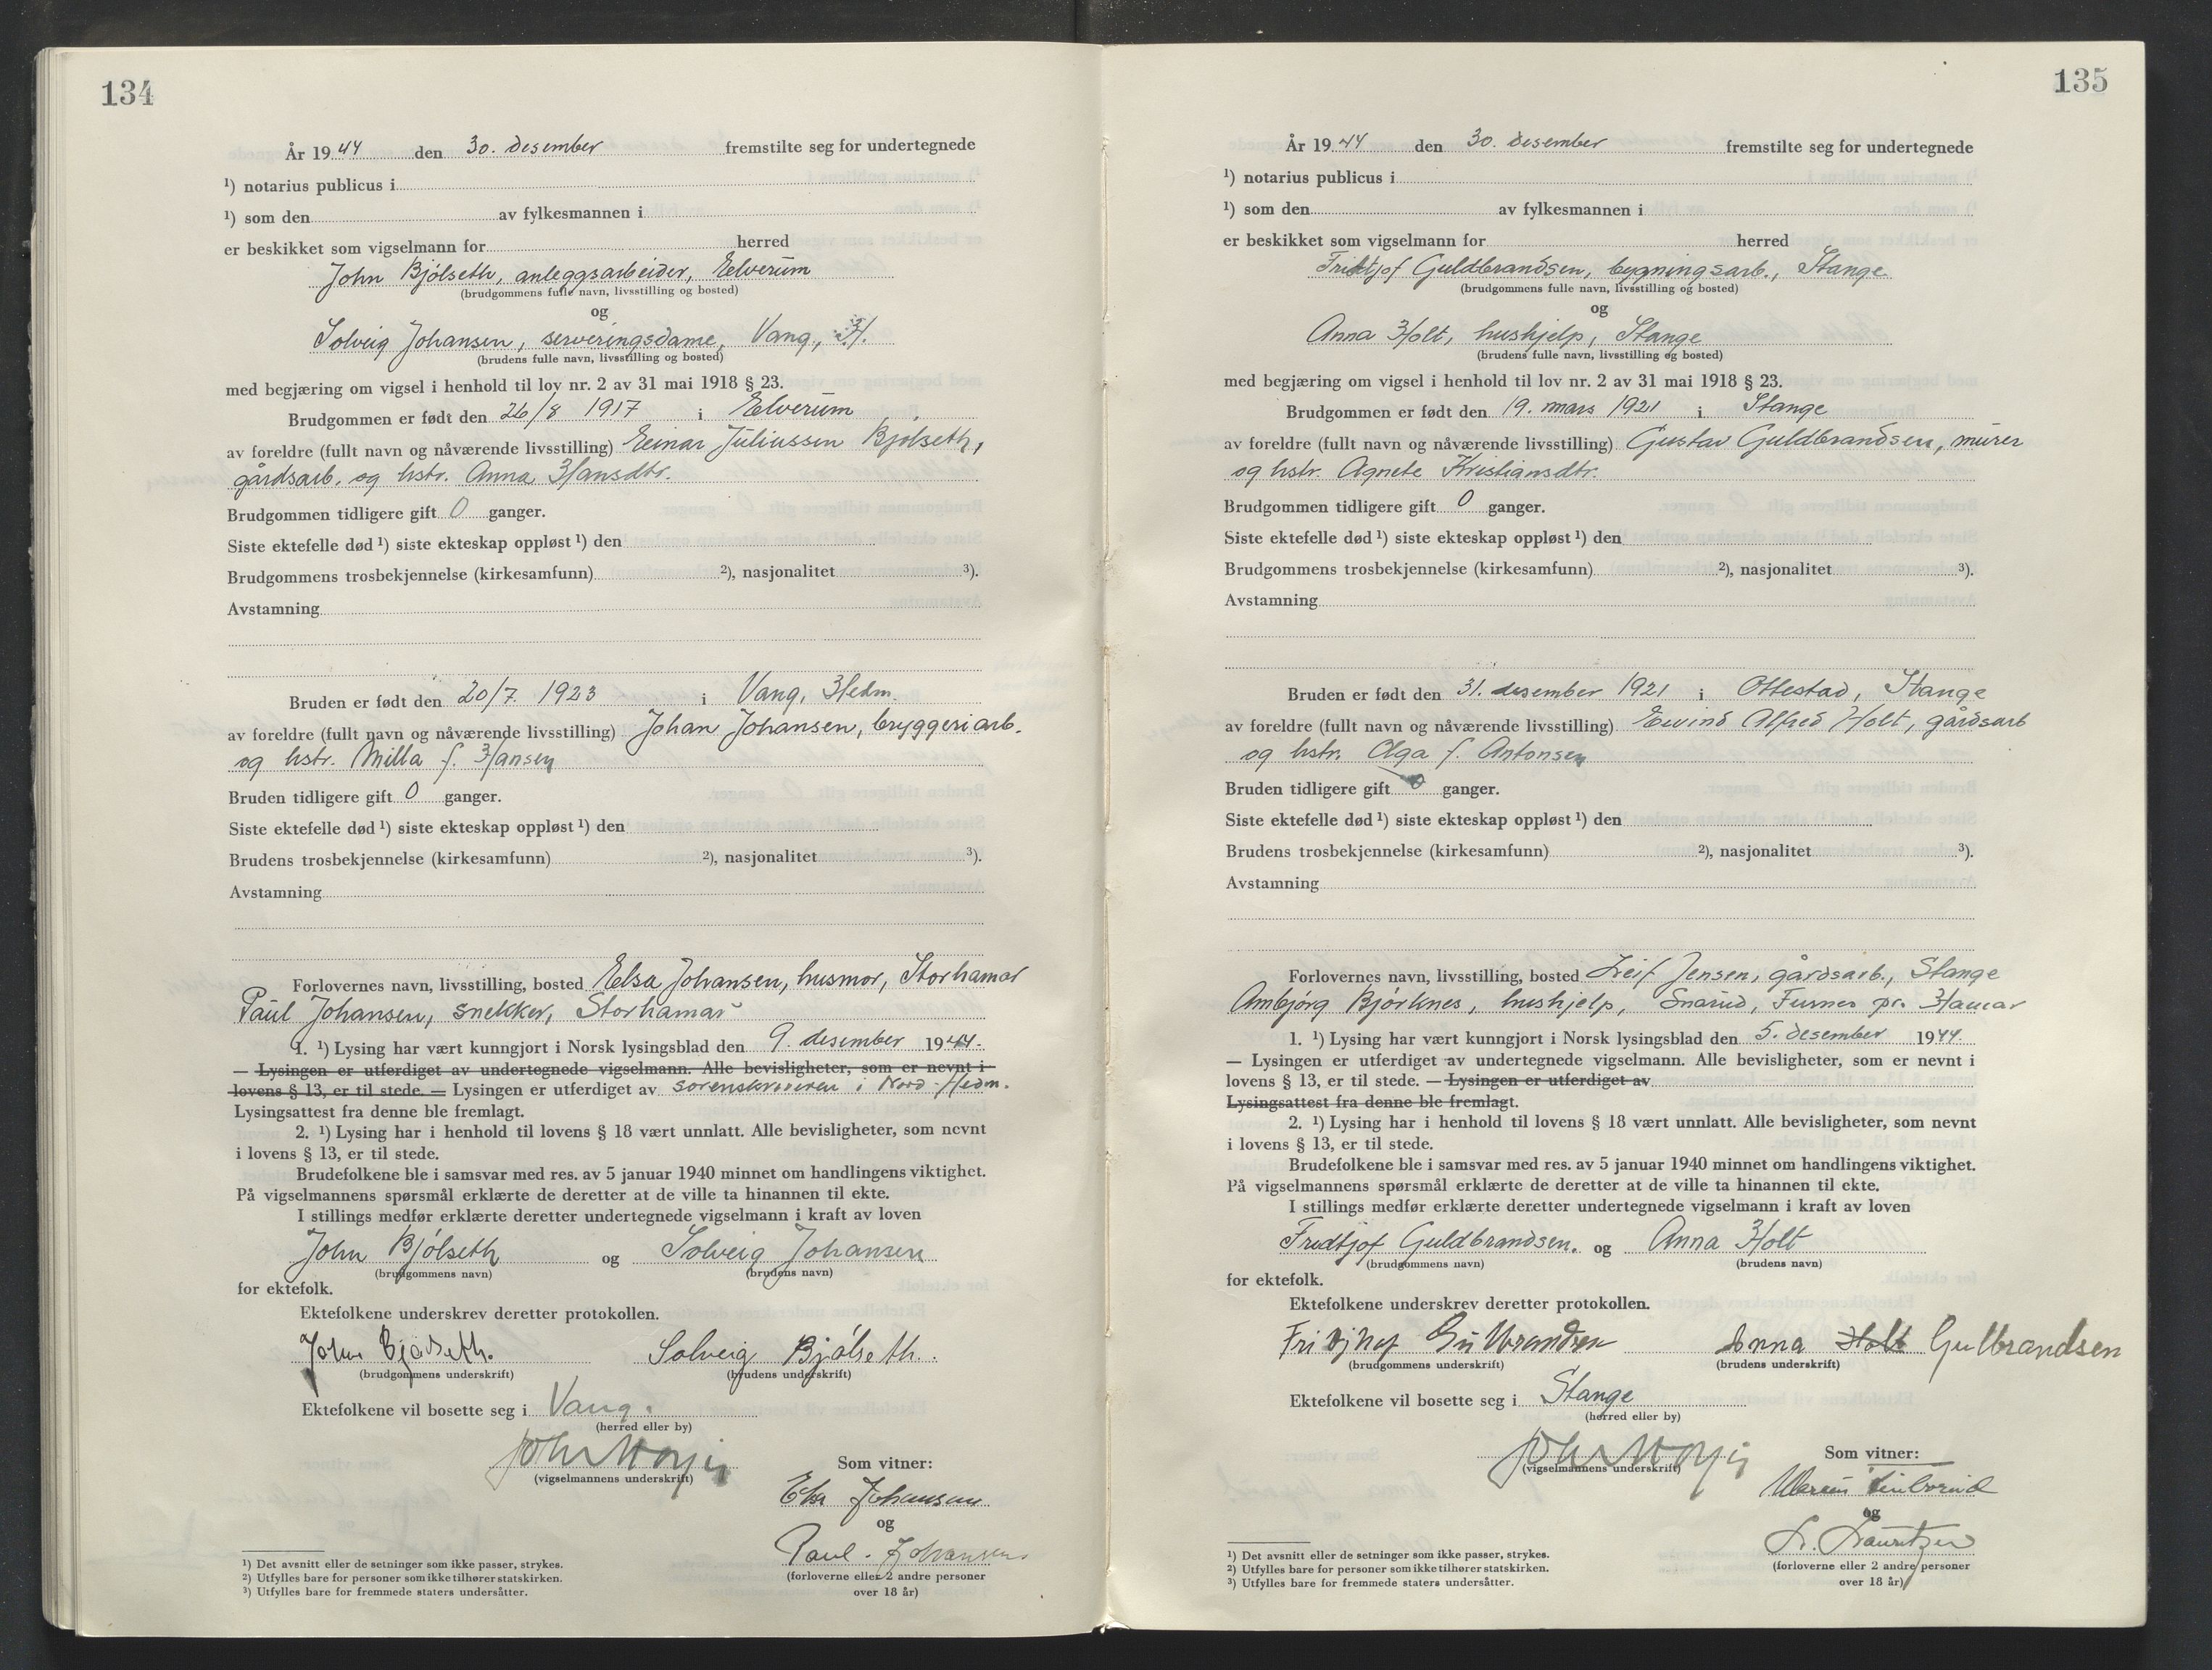 134
År 1944 den 30. desember fremstilte seg for undertegnede
¹) notarius publicus i
¹) som den av fylkesmannen i
er beskikket som vigselmann for herred
John Bjölseth, anleggsarbeider, Elverum
(brudgommens fulle navn, livsstilling og bosted)
og
Solveig Johansen, serveringsdame, Vang, H.
(brudens fulle navn, livsstilling og bosted)
med begjæring om vigsel i henhold til lov nr. 2 av 31 mai 1918 § 23.
Brudgommen er født den 26/8 1917 i Elverum
av foreldre (fullt navn og nåværende livsstilling) Einar Juliussen Bjölseth,
gårdsarb. og hstr. Anna Hansdtr.
Brudgommen tidligere gift 0 ganger.
Siste ektefelle død ¹) siste ekteskap oppløst ¹) den
Brudgommens trosbekjennelse (kirkesamfunn) ²), nasjonalitet ³).
Avstamning
Bruden er født den 20/7 1923 i Vang, Hedm.
av foreldre (fullt navn og nåværende livsstilling) Johan Johansen, bryggeriarb.
og hstr. Milla f. Hansen
Bruden tidligere gift 0 ganger.
Siste ektefelle død ¹) siste ekteskap oppløst ¹) den
Brudens trosbekjennelse (kirkesamfunn) ²), nasjonalitet ³).
Avstamning
Forlovernes navn, livsstilling, bosted Elsa Johansen, husmor, Storhamar
Paul Johansen, snekker, Storhamar
1. ¹) Lysing har vært kunngjort i Norsk lysingsblad den 9. desember 1944.
— Lysingen er utferdiget av undertegnede vigselmann. Alle bevisligheter, som er nevnt i
lovens § 13, er til stede. — Lysingen er utferdiget av sorenskriveren i Nord-Hedm.
Lysingsattest fra denne ble fremlagt.
2. ¹) Lysing har i henhold til lovens § 18 vært unnlatt. Alle bevisligheter, som nevnt
i lovens § 13, er til stede.
Brudefolkene ble i samsvar med res. av 5 januar 1940 minnet om handlingens viktighet.
På vigselmannens spørsmål erklærte de deretter at de ville ta hinannen til ekte.
I stillings medfør erklærte deretter undertegnede vigselmann i kraft av loven
John Bjölseth og Solveig Johansen
(brudgommens navn) (brudens navn)
for ektefolk.
Ektefolkene underskrev deretter protokollen.
John Bjölseth. Solveig Bjölseth.
(brudgommens underskrift) (brudens underskrift)
Ektefolkene vil bosette seg i Vang.
(herred eller by)
(vigselmannens underskrift)
Som vitner:
Elsa Johansen
og
Paul Johansen
(forloverne eller 2 andre personer
over 18 år)
¹) Det avsnitt eller de setninger som ikke passer, strykes.
²) Utfylles bare for personer som ikke tilhører statskirken.
³) Utfylles bare for fremmede staters undersåtter.
135
År 1944 den 30. desember fremstilte seg for undertegnede
¹) notarius publicus i
¹) som den av fylkesmannen i
er beskikket som vigselmann for herred
Fridtjof Guldbrandsen, bygningsarb., Stange
(brudgommens fulle navn, livsstilling og bosted)
og
Anna Holt, hushjelp, Stange
(brudens fulle navn, livsstilling og bosted)
med begjæring om vigsel i henhold til lov nr. 2 av 31 mai 1918 § 23.
Brudgommen er født den 19. mars 1921 i Stange
av foreldre (fullt navn og nåværende livsstilling) Gustav Guldbrandsen, murer
og hstr. Agnete Kristiansdtr.
Brudgommen tidligere gift 0 ganger.
Siste ektefelle død ¹) siste ekteskap oppløst ¹) den
Brudgommens trosbekjennelse (kirkesamfunn) ²), nasjonalitet ³).
Avstamning
Bruden er født den 31. desember 1921 i Ottestad, Stange
av foreldre (fullt navn og nåværende livsstilling) Eivind Alfred Holt, gårdsarb
og hstr. Olga f. Antonsen
Bruden tidligere gift 0 ganger.
Siste ektefelle død ¹) siste ekteskap oppløst ¹) den
Brudens trosbekjennelse (kirkesamfunn) ²), nasjonalitet ³).
Avstamning
Forlovernes navn, livsstilling, bosted Leif Jensen, gårdsarb., Stange
Ambjörg Björknes, hushjelp, Snarud, Furnes pr. Hamar
1. ¹) Lysing har vært kunngjort i Norsk lysingsblad den 5. desember 1944.
— Lysingen er utferdiget av undertegnede vigselmann. Alle bevisligheter, som er nevnt i
lovens § 13, er til stede. — Lysingen er utferdiget av
Lysingsattest fra denne ble fremlagt.
2. ¹) Lysing har i henhold til lovens § 18 vært unnlatt. Alle bevisligheter, som nevnt
i lovens § 13, er til stede.
Brudefolkene ble i samsvar med res. av 5 januar 1940 minnet om handlingens viktighet.
På vigselmannens spørsmål erklærte de deretter at de ville ta hinannen til ekte.
I stillings medfør erklærte deretter undertegnede vigselmann i kraft av loven
Fridtjof Guldbrandsen. og Anna Holt
(brudgommens navn) (brudens navn)
for ektefolk.
Ektefolkene underskrev deretter protokollen.
Fritjhof Gulbrandsen Anna Holt Gulbrandsen
(brudgommens underskrift) (brudens underskrift)
Ektefolkene vil bosette seg i Stange
(herred eller by)
(vigselmannens underskrift)
Som vitner:
og
L. Lauritzen
(forloverne eller 2 andre personer
over 18 år)
¹) Det avsnitt eller de setninger som ikke passer, strykes.
²) Utfylles bare for personer som ikke tilhører statskirken.
³) Utfylles bare for fremmede staters undersåtter.